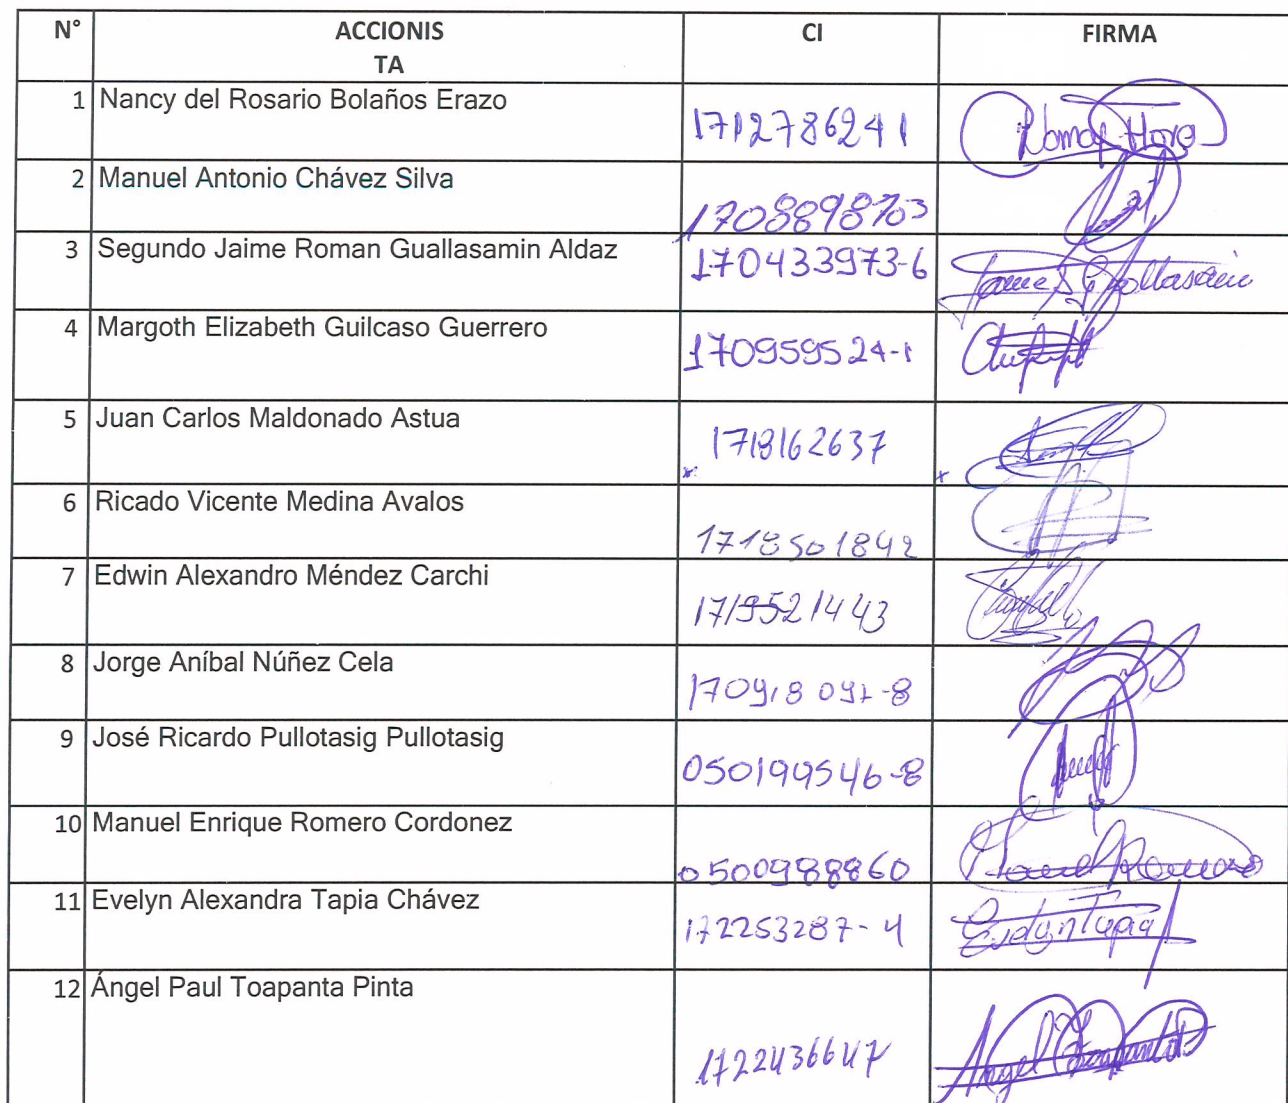 N° ACCIONIS CI FIRMA
TA
1 Nancy del Rosario Bolaños Erazo 1712786241
2 Manuel Antonio Chávez Silva 1708898703
3 Segundo Jaime Roman Guallasamin Aldaz 170433973-6
4 Margoth Elizabeth Guilcaso Guerrero 170959524-1
5 Juan Carlos Maldonado Astua 1718162637
6 Ricado Vicente Medina Avalos 1718501842
7 Edwin Alexandro Méndez Carchi 1719521443
8 Jorge Aníbal Núñez Cela 170918091-8
9 José Ricardo Pullotasig Pullotasig 050199546-8
10 Manuel Enrique Romero Cordonez 0500988860
11 Evelyn Alexandra Tapia Chávez 172253287-4 Evelyn Tapia
12 Ángel Paul Toapanta Pinta 1722436647 Angel Toapanta